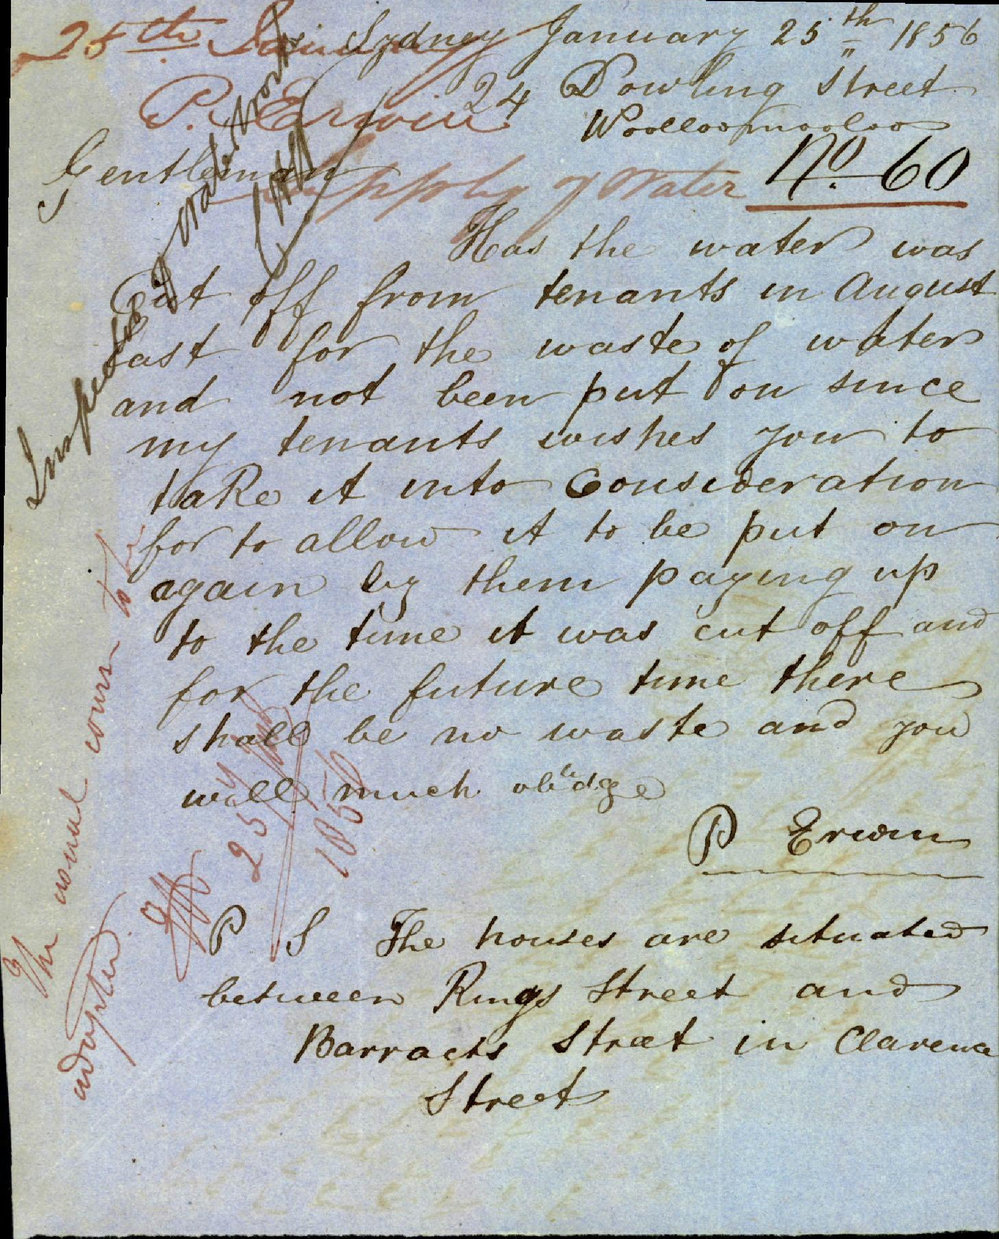 Sydney January 25th 1856
24 Dowling Street
Woolloomooloo
No. 60
25th January
P. Erwin
Supply of Water
Gentleman
Has the water was
Cut off from tenants in August
last for the waste of water
and not been put on since
my tenants wishes you to
take it into Consideration
for to allow it to be put on
again by them paying up
to the time it was cut off and
for the future time there
shall be no waste and you
will much obledge
P Erwin
P S The houses are situated
between Kings Street and
Barracks Street in Clarence
Street
Inspector of Water works
The usual course to be
adopted
25
1856